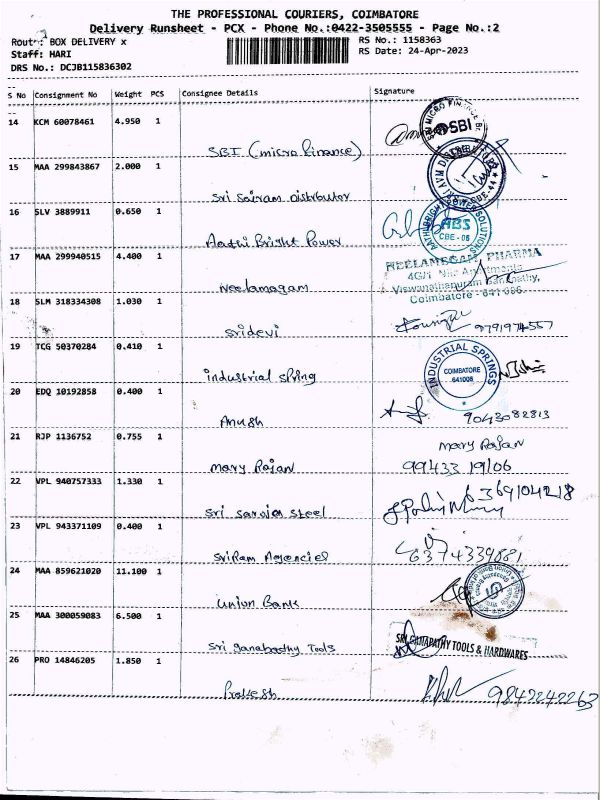 THE PROFESSIONAL COURIERS, COIMBATORE
Delivery Runsheet - PCX - Phone No.:0422-3505555 - Page No.:2
Route: BOX DELIVERY x
RS No.: 1158363
Staff: HARI
RS Date: 24-Apr-2023
DRS No.: DCJB115836302
S No Consignment No Weight PCS Consignee Details Signature
14 KCM 60078461 4.950 1
SBI (micro finance)
SBI
15 MAA 299843867 2.000 1
Sri Sairam Distributor
16 SLV 3889911 0.650 1
Aathi Bright Power
AATHI BRIGHT POWER SOLUTIONS
ABS
CBE - 06
17 MAA 299940515 4.400 1
Neelamagam
NEELAMEGAM PHARMA
Coimbatore - 641
18 SLM 318334308 1.030 1
Sridevi
9791974557
19 TCG 50370284 0.410 1
industrial spring
INDUSTRIAL SPRINGS
COIMBATORE
641006
20 EDQ 10192858 0.400 1
Anush
9043082813
21 RJP 1136752 0.755 1
mary Rajan
mary Rajan
99433 19106
22 VPL 940757333 1.330 1
Sri Saravia Steel
6369104218
23 VPL 943371109 0.400 1
SriRam Agencies
6374339881
24 MAA 859621020 11.100 1
Union Bank
25 MAA 300059083 6.500 1
Sri Ganabathy Tools
SRI GANAPATHY TOOLS & HARDWARES
26 PRO 14846205 1.850 1
Prakesh
9842242263